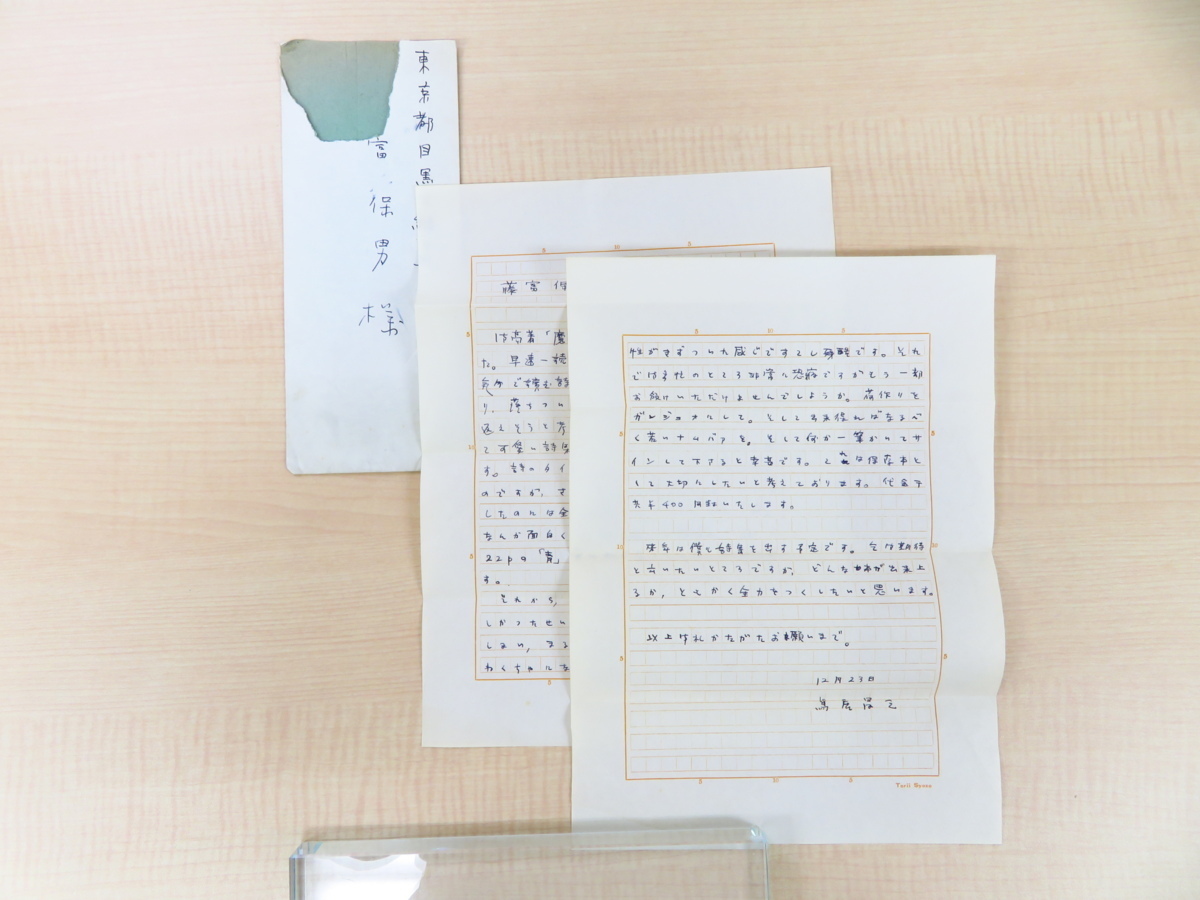 東京都目黒
富 保男様
藤富保
は高著「魔
た。早速一
り、落ちつい
返えそうと考
て可愛い詩集
す。詩のタイ
のですが、す
したのには全
なんか面白く
22pの「青」
す。
それから、
しかったせい
しまい、まる
わくちゃにな
性がきずついた感じですてし 残酷です。それ
では多忙のところ非常に恐縮ですがもう一部
お頒けいただけませんでしょうか。荷作りを
ガレジョウにして。そしてなるべ
く若いナムバアを。そして何か一筆かいてサ
インして下さると幸甚です。これは保存本と
して大切にしたいと考えております。代金子
共 400円 いたします。
来年は僕も詩集を出す予定です。乞う期待
と言いたいところですが、どんな が出来上
るか、ともかく全力をつくしたいと思います。
以上御礼かたがたお願いまで。
12月23日
鳥居昌三
Torii Syozo